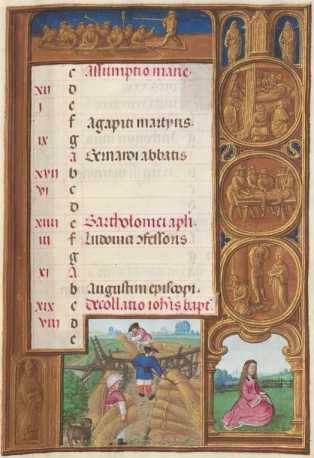 c Assumptio marie.
xii d
i e
f Agapiti martyris.
ix g
a Bernardi abbatis
xvii b
vi c
d
xiiii e Bartholomei apli.
iii f Ludouici cfessoris.
g
xi A
b Augustini episcopi.
xix c Decollatio iohis bapt.
viii d
e